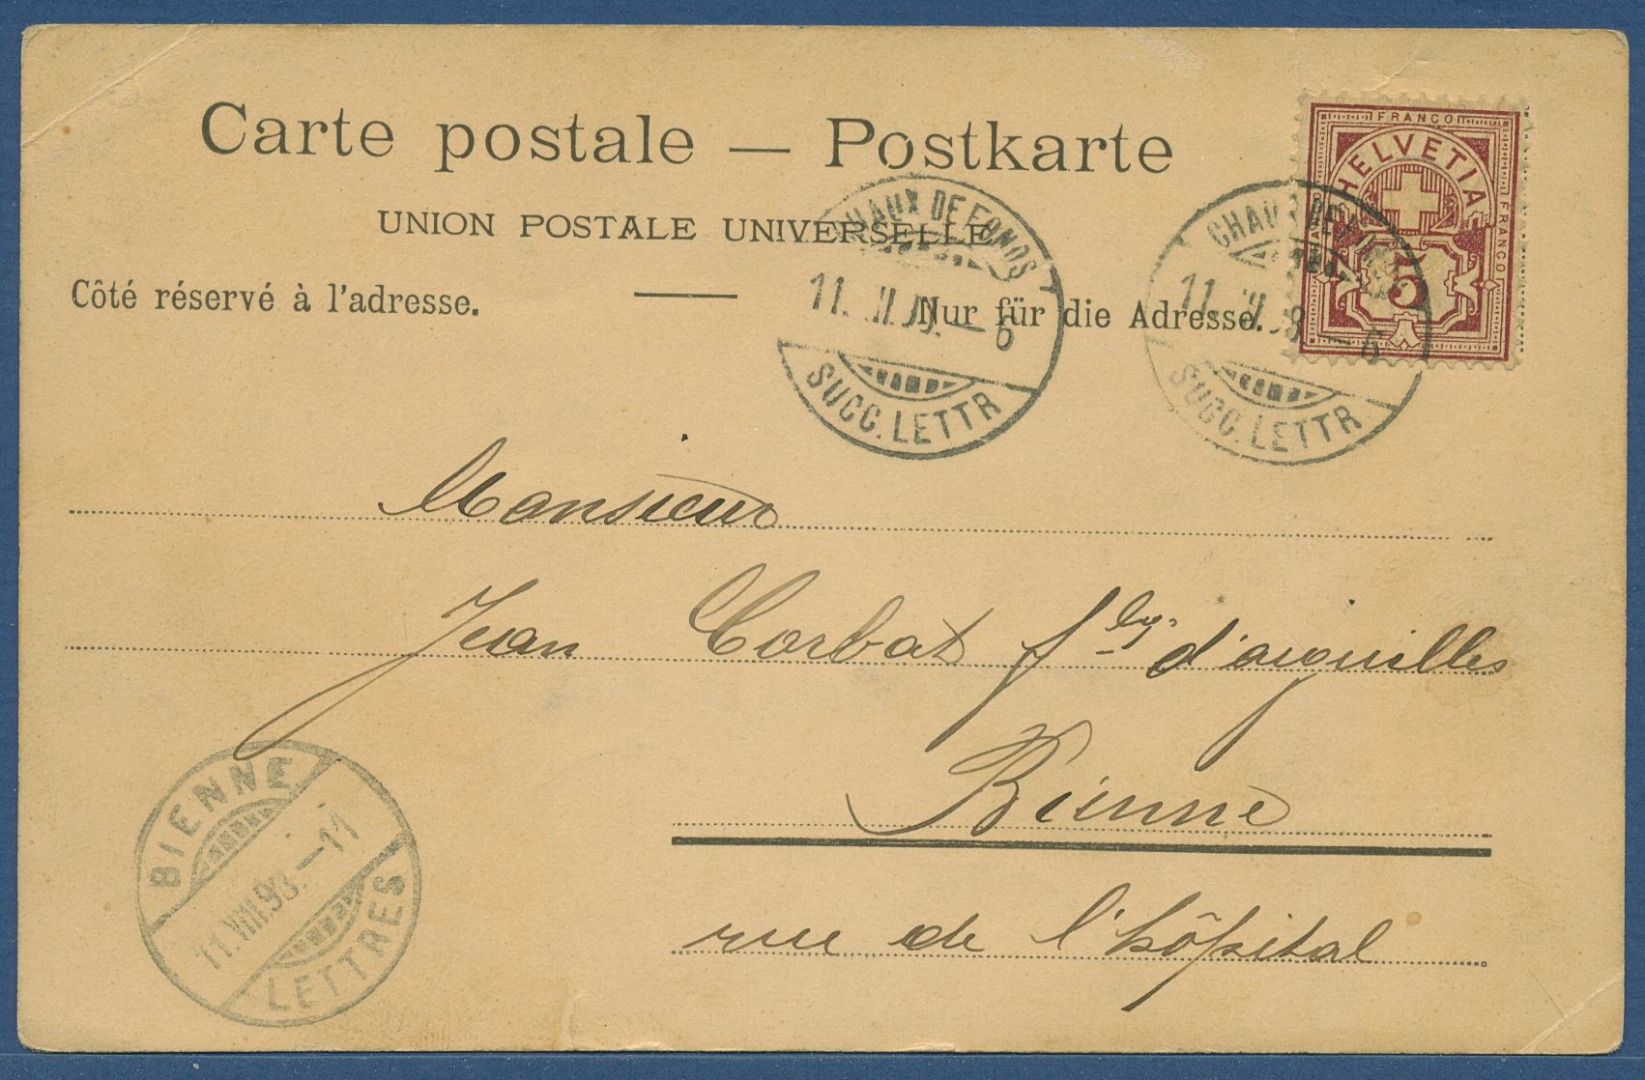 Carte postale — Postkarte
UNION POSTALE UNIVERSELLE
Côté réservé à l'adresse. — Nur für die Adresse.
FRANCO
HELVETIA
FRANCO
5
CHAUX DE FONDS
11. — 6
SUCC. LETTR
CHAUX DE FONDS
11. — 6
SUCC. LETTR
Monsieur
Jean Corbat f. d'aiguilles
Bienne
rue de l'hôpital
BIENNE
11.VIII.93.—11
LETTRES